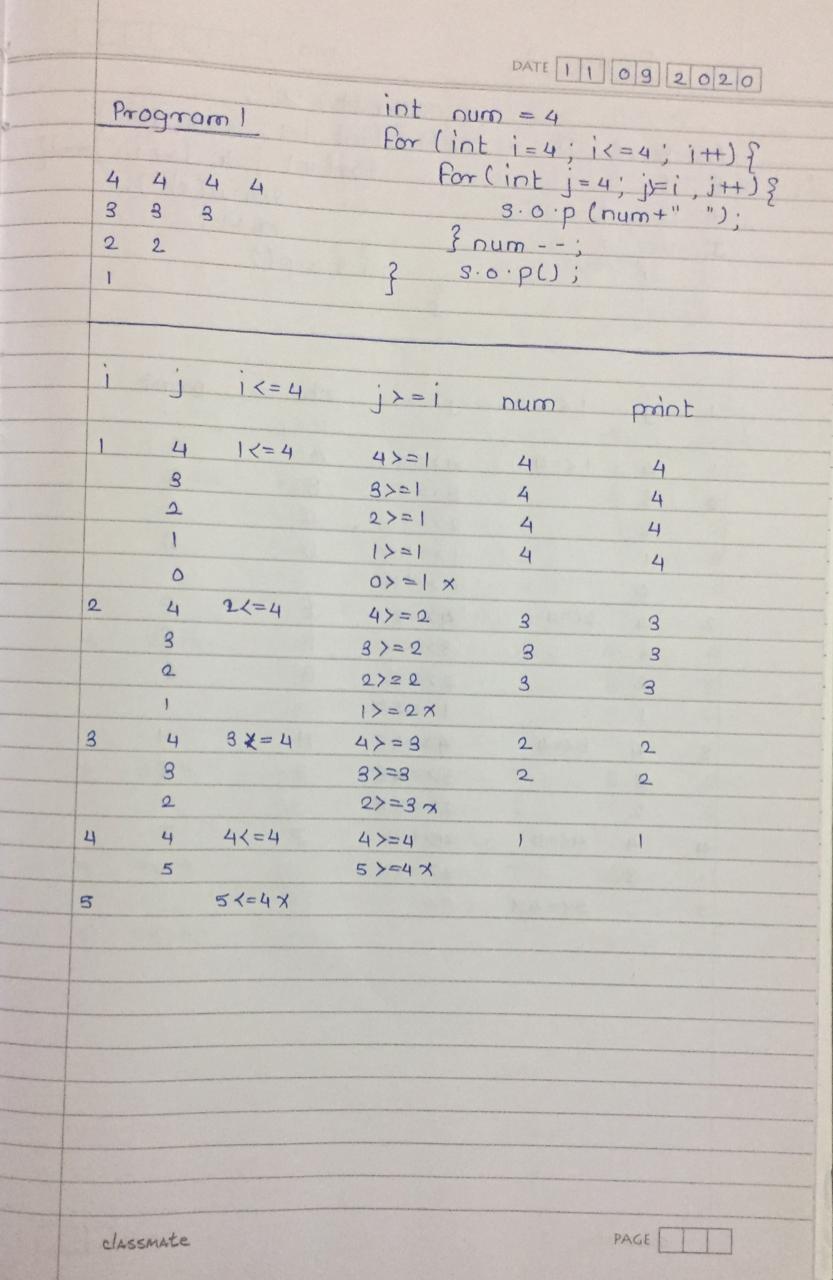 DATE 11 09 2020
Program 1
int num = 4
for (int i=4; i<=4; i++) {
for (int j=4; j>=i, j++) {
4 4 4 4
s.o.p (num+" ");
3 3 3
} num --;
2 2
} s.o.p();
1
i j i<=4 j>=i num print
1 4 1<=4 4>=1 4 4
3 3>=1 4 4
2 2>=1 4 4
1 1>=1 4 4
0 0>=1 x
2 4 2<=4 4>=2 3 3
3 3>=2 3 3
2 2>=2 3 3
1 1>=2 x
3 4 3<=4 4>=3 2 2
3 3>=3 2 2
2 2>=3 x
4 4 4<=4 4>=4 1 1
5 5>=4 x
5 5<=4 x
classmate PAGE